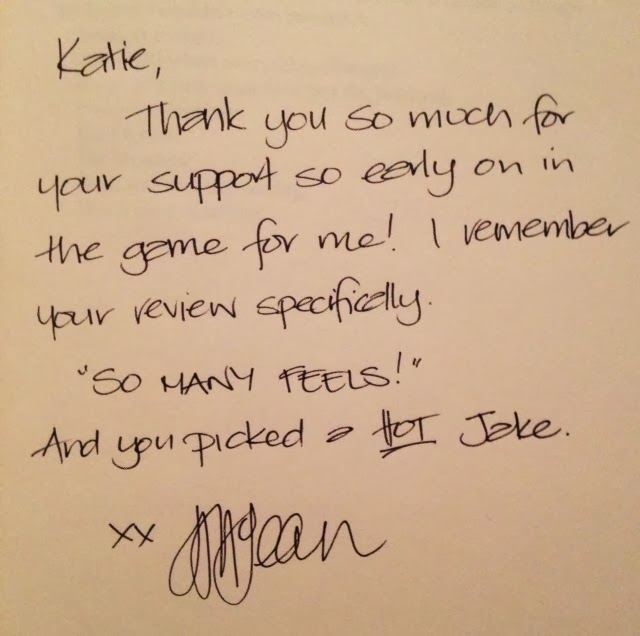 Katie,
Thank you so much for
your support so early on in
the game for me! I remember
your review specifically.
"SO MANY FEELS!"
And you picked a HOT Jake.
xx